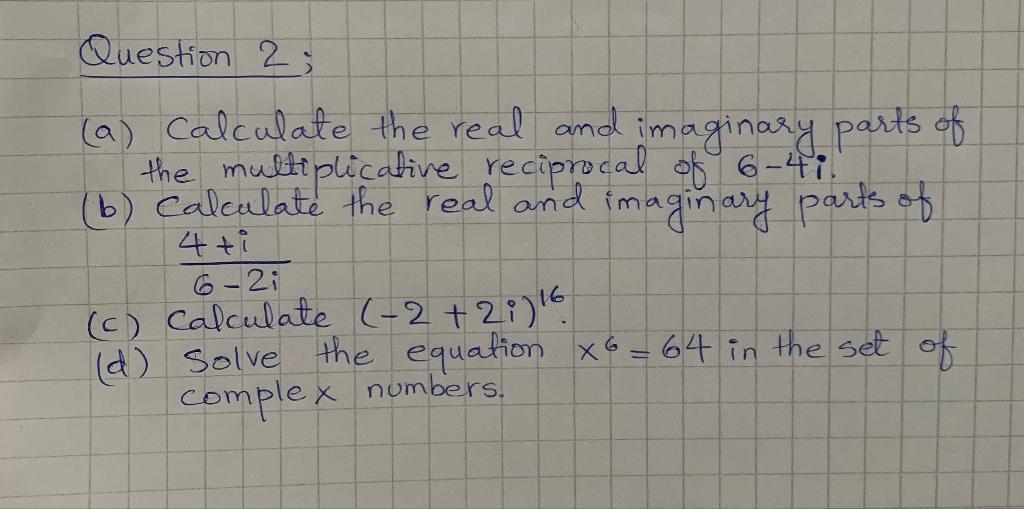 Question 2;
(a) Calculate the real and imaginary parts of
the multiplicative reciprocal of 6-4i.
(b) Calculate the real and imaginary parts of
4+i
6-2i
(c) Calculate (-2+2i)¹⁶.
(d) Solve the equation x⁶=64 in the set of
complex numbers.